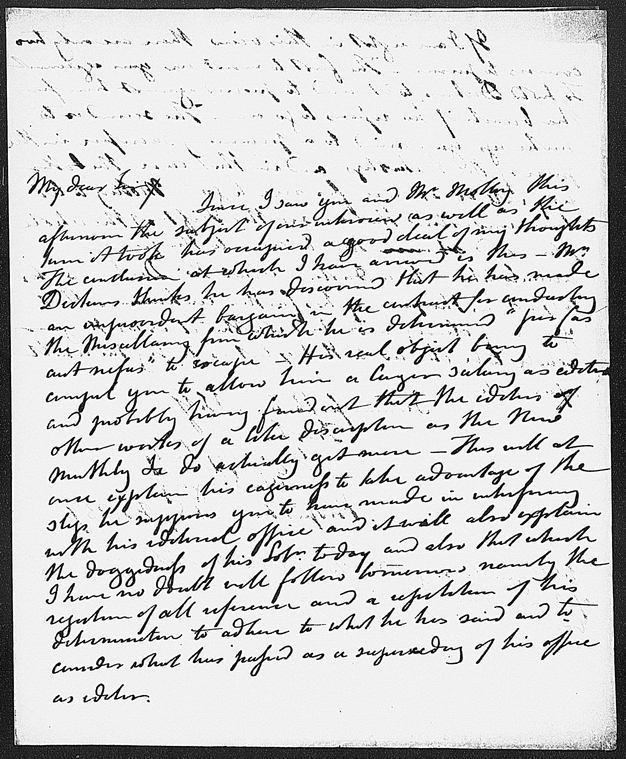 My dear Sir
Since I saw you and Mr. Molloy this
afternoon the subject of our interview as well as the
turn it took has occupied a good deal of my thoughts
The conclusion at which I have arrived is this – Mr.
Dickens thinks he has discovered that he has made
an improvident bargain in the contract for conducting
the Miscellany from which he is determined "per fas
aut nefas" to escape – His real object being to
compel you to allow him a larger salary as editor
and probably having found out that the editors of
other works of a like description as the New
Monthly &c do actually get more – This will at
once explain his eagerness to take advantage of the
step he supposes you to have made in interfering
with his editorial office and it will also explain
the doggedness of his Solr. today and also that which
I have no doubt will follow tomorrow namely the
rejection of all reference and a repetition of his
determination to adhere to what he has said and to
consider what has passed as a superseding of his office
as editor.